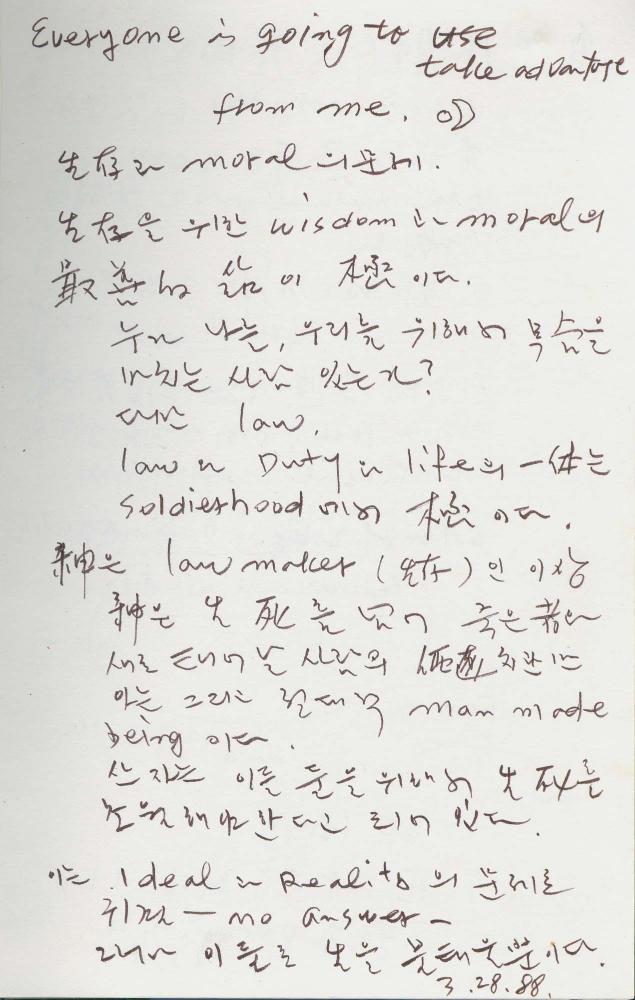 Everyone is going to use
take advantage
from me.
生存과 moral의 문제.
生存을 위한 wisdom과 moral의
最善的 삶이 極이다.
누가 나를, 우리를 위해서 목숨을
바치는 사람 있는가?
다만 law,
law와 Duty와 life의 一体는
soldierhood에서 極이다.
神은 law maker (生存)인 이상
神은 生死를 넘어 죽은 者와
새로 태어날 사람의 만
아는 그리고 절대적 man made
being이다.
산 자는 이들 둘을 위해서 生死를
초월해야 한다고 되어 있다.
이는 Ideal과 Reality의 문제로
귀결 — no answer —
그러나 이들로 生을 불태울 뿐이다.
3.28.88.